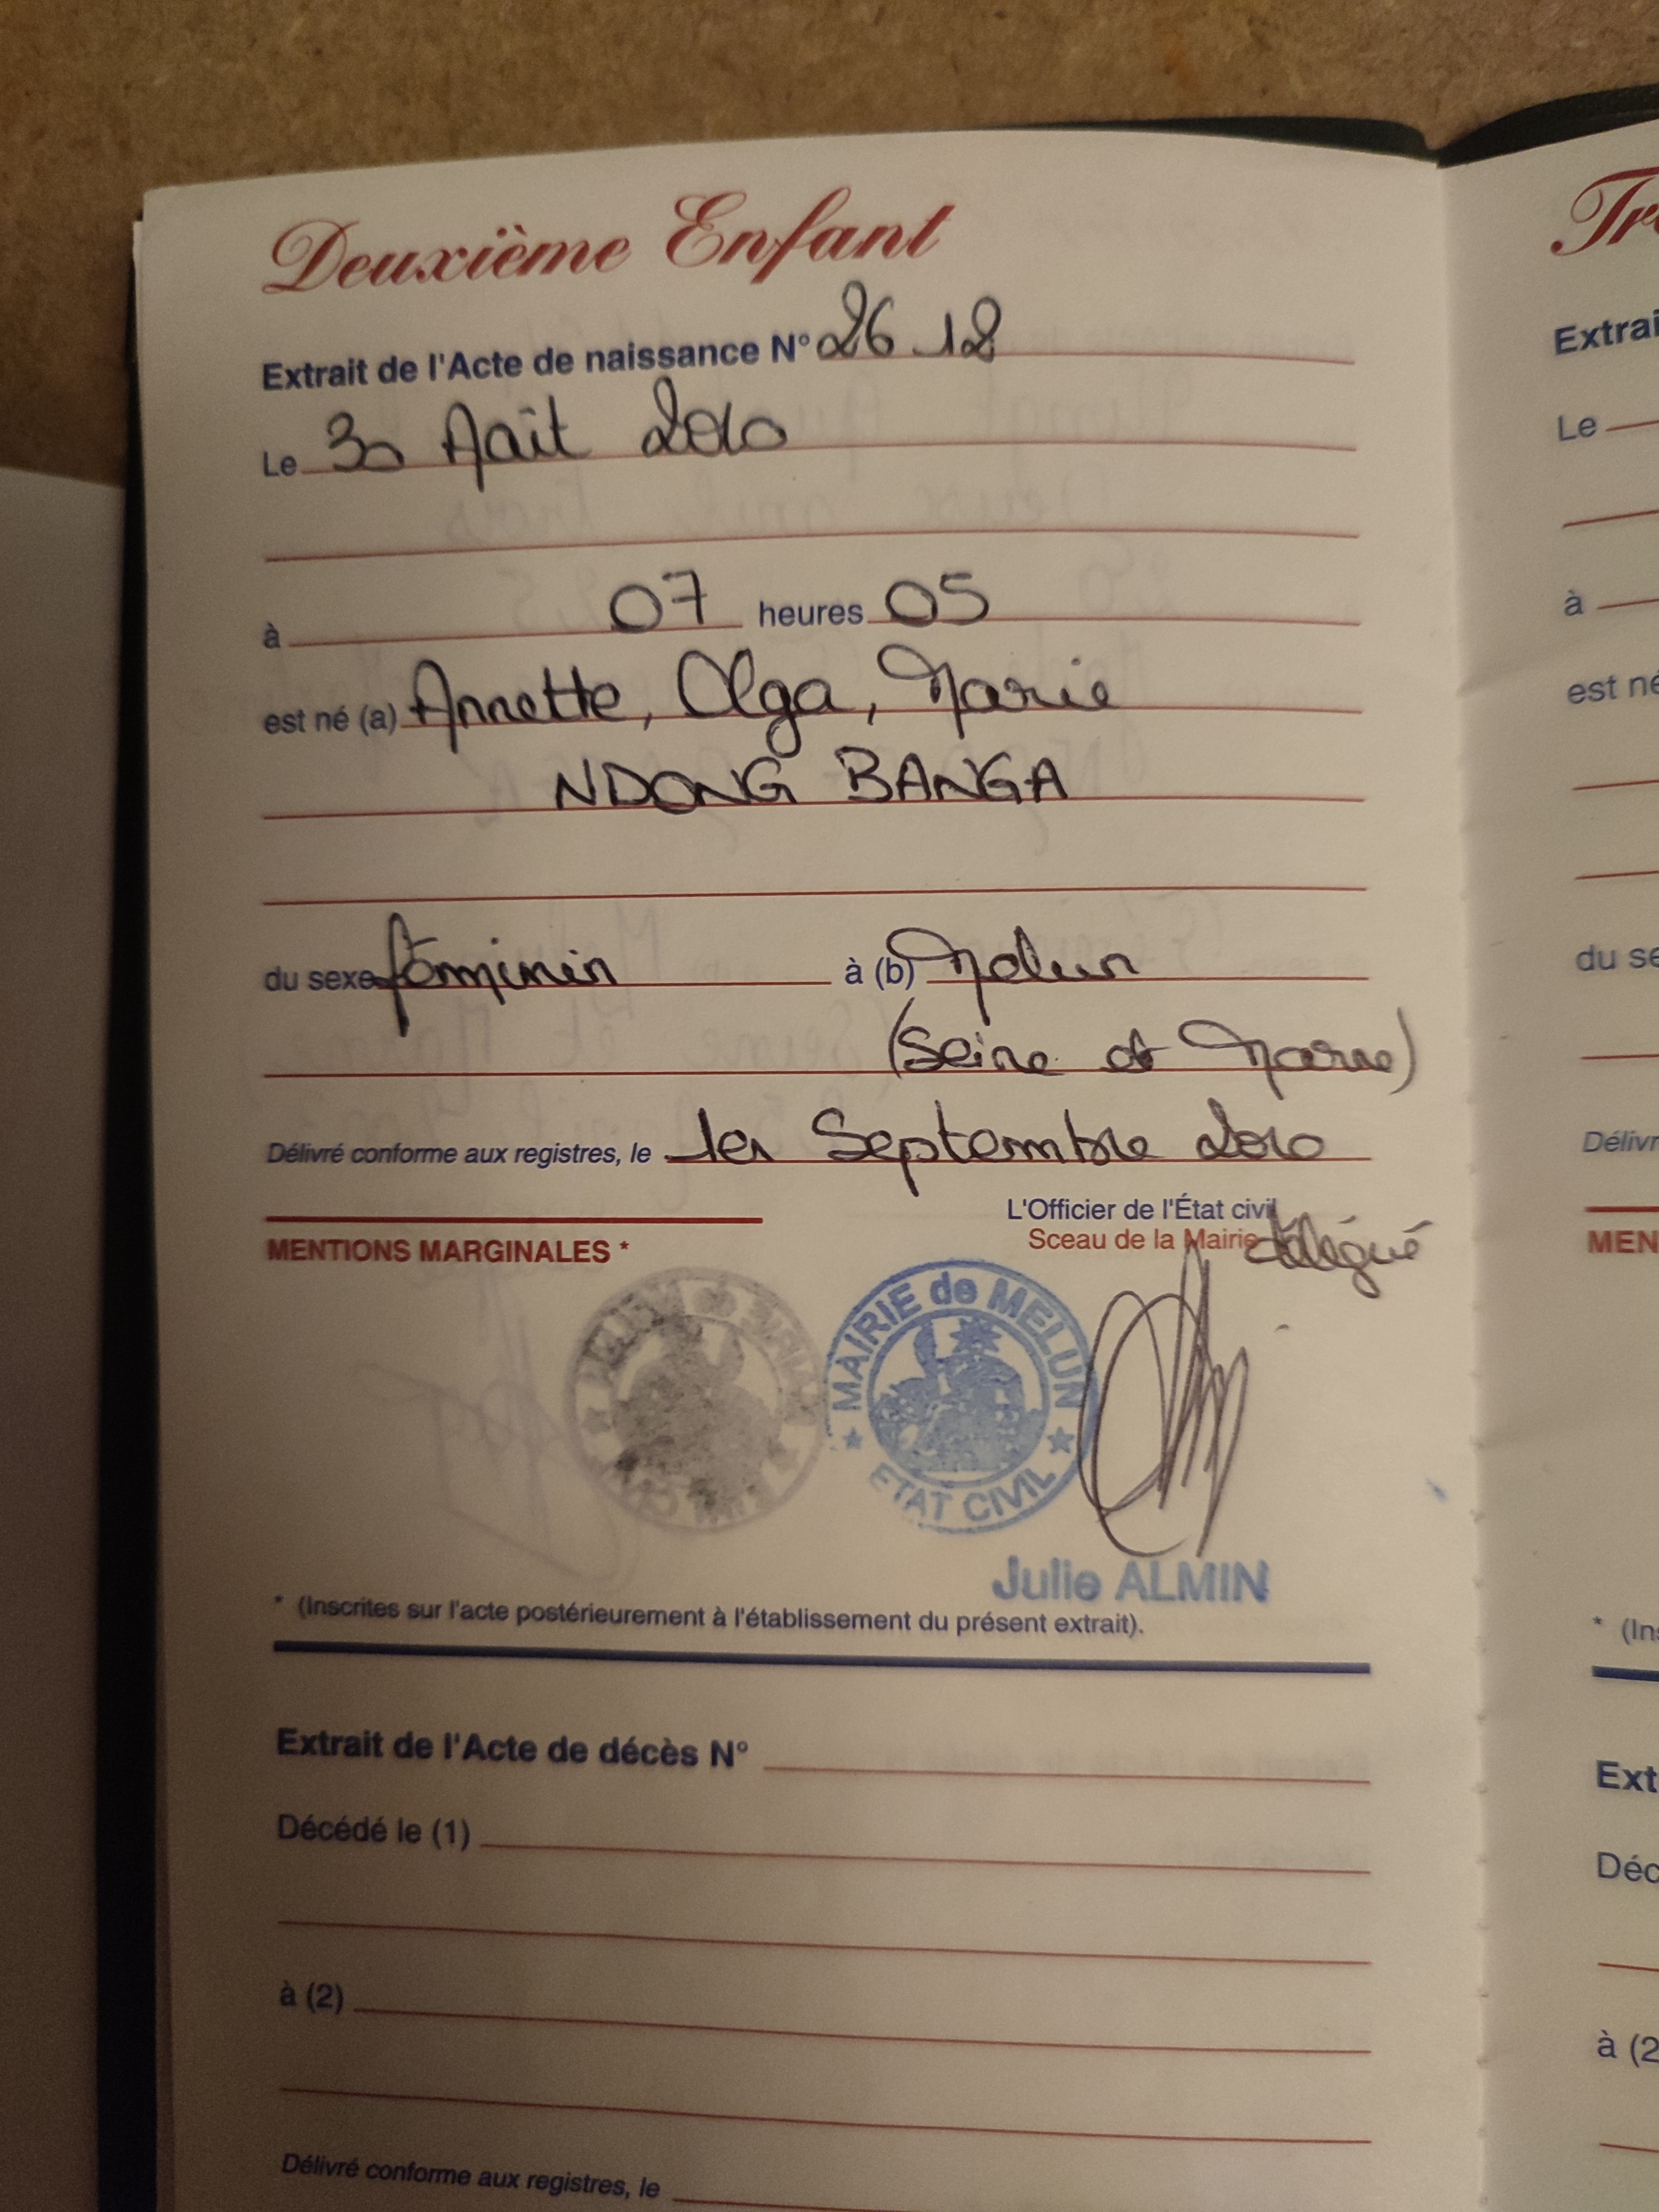 Deuxième Enfant
Extrait de l'Acte de naissance N° 2612
Le 30 Août 2010
à 07 heures 05
est né (a) Annette, Olga, Marie
NDONG BANGA
du sexe féminin à (b) Melun
(Seine et Marne)
Délivré conforme aux registres, le 1er Septembre 2010
L'Officier de l'État civil
délégué
Sceau de la Mairie
MENTIONS MARGINALES *
MAIRIE de MELUN
ETAT CIVIL
Julie ALMIN
* (Inscrites sur l'acte postérieurement à l'établissement du présent extrait).
Extrait de l'Acte de décès N°
Décédé le (1)
à (2)
Délivré conforme aux registres, le
Le
à
est né